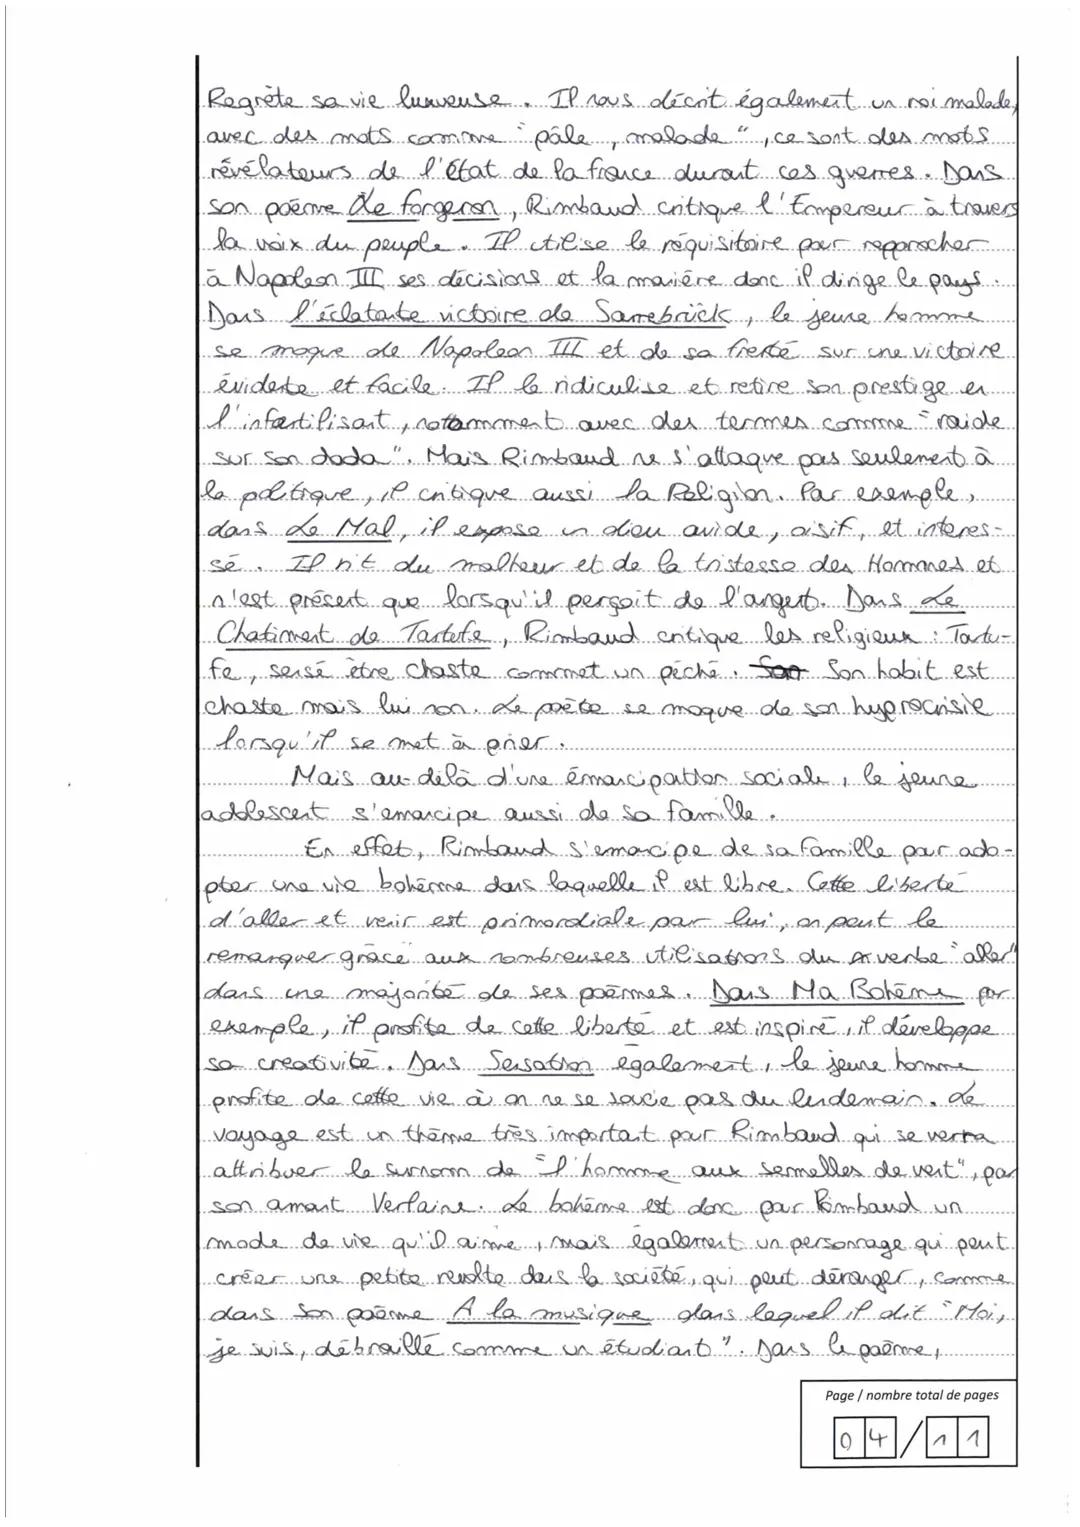 Regrète sa vie luxueuse. Il nous décrit également un roi malade,
avec des mots comme "pâle, malade", ce sont des mots
révélateurs de l'état de la france durant ces guerres. Dans
son poème Le forgeron, Rimbaud critique l'Empereur à travers
la voix du peuple. Il utilise le réquisitoire pour reprocher
à Napoléon III ses décisions et la manière donc il dirige le pays.
Dans l'éclatante victoire de Sarrebrück, le jeune homme
se moque de Napoléon III et de sa fierté sur une victoire
évidente et facile. Il le ridiculise et retire son prestige en
l'infantilisant, notamment avec des termes comme "raide
sur son dada". Mais Rimbaud ne s'attaque pas seulement à
la politique, il critique aussi la Religion. Par exemple,
dans Le Mal, il expose un dieu avide, oisif, et interes-
sé. Il rit du malheur et de la tristesse des Hommes et
n'est présent que lorsqu'il perçoit de l'argent. Dans Le
Chatiment de Tartufe, Rimbaud critique les religieux : Tartu-
fe, sensé être chaste commet un péché. Son habit est
chaste mais lui non. Le poète se moque de son hyprocrisie
lorsqu'il se met à prier.
Mais au-delà d'une émancipation sociale, le jeune
adolescent s'emancipe aussi de sa famille.
En effet, Rimbaud s'emancipe de sa famille pour ado-
pter une vie bohème dans laquelle il est libre. Cette liberté
d'aller et venir est primordiale pour lui, on peut le
remarquer grâce aux nombreuses utilisations du verbe "aller"
dans une majorité de ses poèmes. Dans Ma Bohème par
exemple, il profite de cette liberté et est inspiré, il développe
sa creativité. Dans Sensation également, le jeune homme
profite de cette vie à on ne se soucie pas du lendemain. Le
voyage est un thème très important pour Rimbaud qui se verra
attribuer le surnom de "l'homme aux semelles de vent", par
son amant Verlaine. Le bohème est donc pour Rimbaud un
mode de vie qu'il aime, mais également un personnage qui peut
créer une petite révolte dans la société, qui peut déranger, comme
dans son poème A la musique dans lequel il dit "Moi,
je suis, débraillé comme un étudiant". Dans le poème,
Page / nombre total de pages
04/11